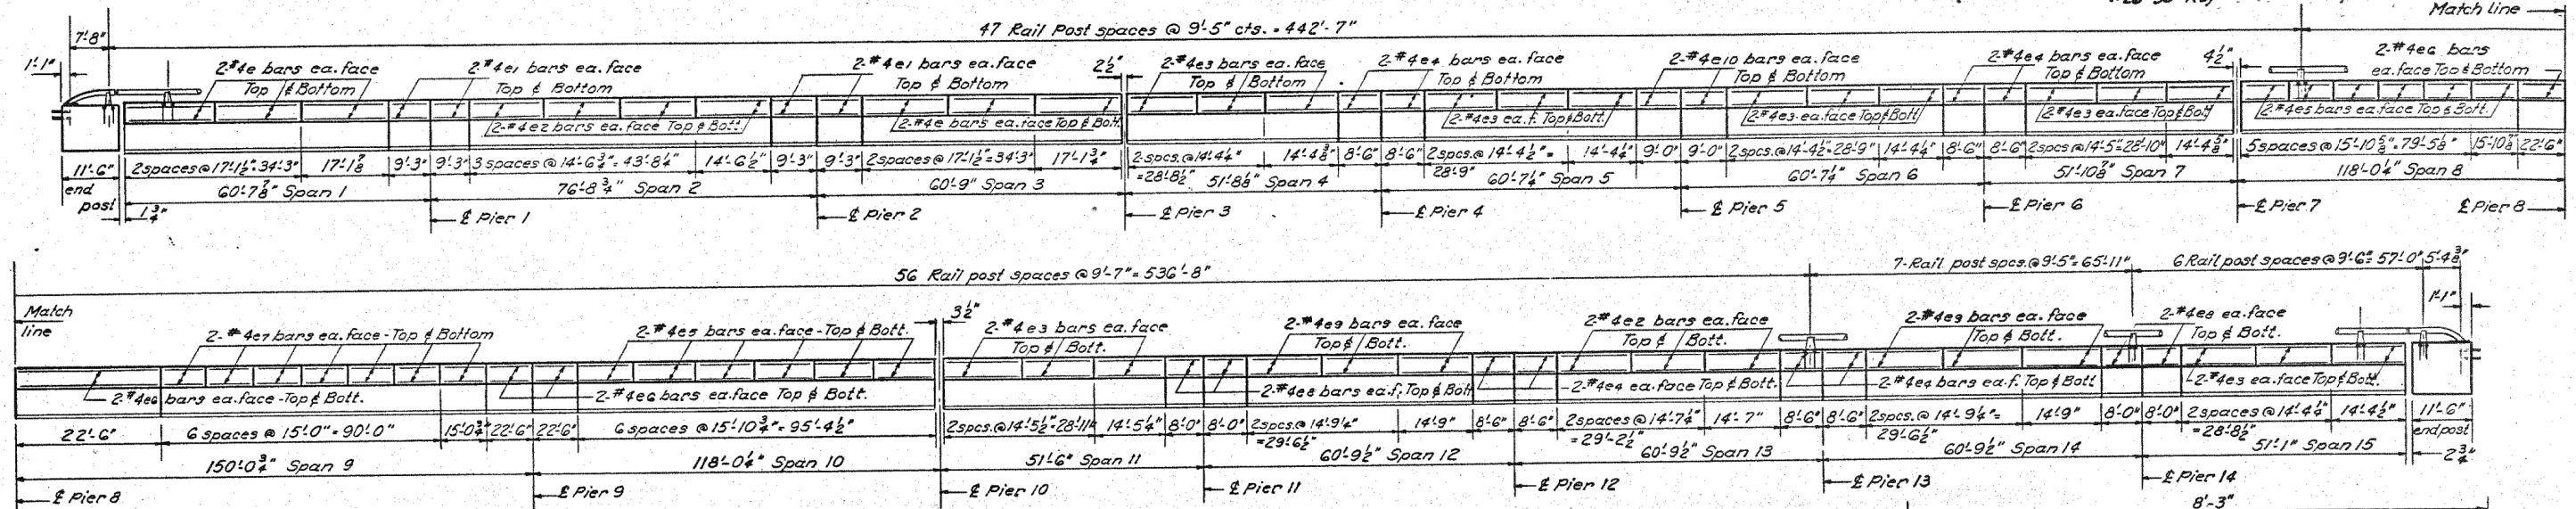 Match line
47 Rail Post spaces @ 9'-5" cts. = 442'-7"
7'-8"
1'-1"
2-#4e bars ea. face
Top & Bottom
2-#4e1 bars ea. face
Top & Bottom
2-#4e1 bars ea. face
Top & Bottom
2½"
2-#4e3 bars ea. face
Top & Bottom
2-#4e4 bars ea. face
Top & Bottom
2-#4e10 bars ea. face
Top & Bottom
2-#4e4 bars ea. face
Top & Bottom
4½"
2-#4e6 bars
ea. face Top & Bottom
2-#4e2 bars ea. face Top & Bott.
2-#4e bars ea. face Top & Bott.
2-#4e3 ea. f. Top & Bott.
2-#4e3 ea. face Top & Bott.
2-#4e3 ea. face Top & Bott.
2-#4e5 bars ea. face Top & Bott.
11'-6"
end
post
2 spaces @ 17'-1½" = 34'-3"
17'-1⅞
9'-3"
9'-3"
3 spaces @ 14'-6¾" = 43'-8¼"
14'-6½"
9'-3"
9'-3"
2 spaces @ 17'-1½" = 34'-3"
17'-1¾"
2-spcs. @ 14'-4¼"
= 28'-8½"
14'-4⅜"
8'-6"
8'-6"
2 spcs. @ 14'-4½" =
28'-9"
14'-4¼"
9'-0"
9'-0"
2 spcs. @ 14'-4½" = 28'-9"
14'-4¼"
8'-6"
8'-6"
2 spcs @ 14'-5" = 28'-10"
14'-4⅝"
5 spaces @ 15'-10⅝" = 79'-5⅛"
15'-10⅞"
22'-6"
60'-7⅞" Span 1
76'-8¾" Span 2
60'-9" Span 3
51'-8⅞" Span 4
60'-7¼" Span 5
60'-7¼" Span 6
51'-10⅞" Span 7
118'-0¼" Span 8
1¾"
℄ Pier 1
℄ Pier 2
℄ Pier 3
℄ Pier 4
℄ Pier 5
℄ Pier 6
℄ Pier 7
℄ Pier 8
56 Rail post spaces @ 9'-7" = 536'-8"
7-Rail post spcs. @ 9'-5" = 65'-11"
6 Rail post spaces @ 9'-6" = 57'-0"
5'-4⅜"
Match
line
3½"
1'-1"
2-#4e7 bars ea. face - Top & Bottom
2-#4e5 bars ea. face - Top & Bott.
2-#4e3 bars ea. face
Top & Bott.
2-#4e9 bars ea. face
Top & Bott.
2-#4e2 bars ea. face
Top & Bott.
2-#4e9 bars ea. face
Top & Bott.
2-#4e8 ea. face
Top & Bott.
2-#4e6 bars ea. face - Top & Bott.
2-#4e6 bars ea. face Top & Bott.
2-#4e8 bars ea. f. Top & Bott
2-#4e4 ea. face Top & Bott.
2-#4e4 ea. f. Top & Bott
2-#4e3 ea. face Top & Bott.
22'-6"
6 spaces @ 15'-0" = 90'-0"
15'-0¾"
22'-6"
22'-6"
6 spaces @ 15'-10¾" = 95'-4½"
2 spcs. @ 14'-5½" = 28'-11"
14'-5¼"
8'-0"
8'-0"
2 spcs. @ 14'-9¼"
= 29'-6½"
14'-9"
8'-6"
8'-6"
2 spaces @ 14'-7¼"
= 29'-2½"
14'-7"
8'-6"
8'-6"
2 spcs. @ 14'-9¼" =
29'-6½"
14'-9"
8'-0"
8'-0"
2 spaces @ 14'-4¼"
= 28'-8½"
14'-4½"
11'-6"
end post
150'-0¾" Span 9
118'-0¼" Span 10
51'-6" Span 11
60'-9½" Span 12
60'-9½" Span 13
60'-9½" Span 14
51'-1" Span 15
2¾"
℄ Pier 8
℄ Pier 9
℄ Pier 10
℄ Pier 11
℄ Pier 12
℄ Pier 13
℄ Pier 14
8'-3"